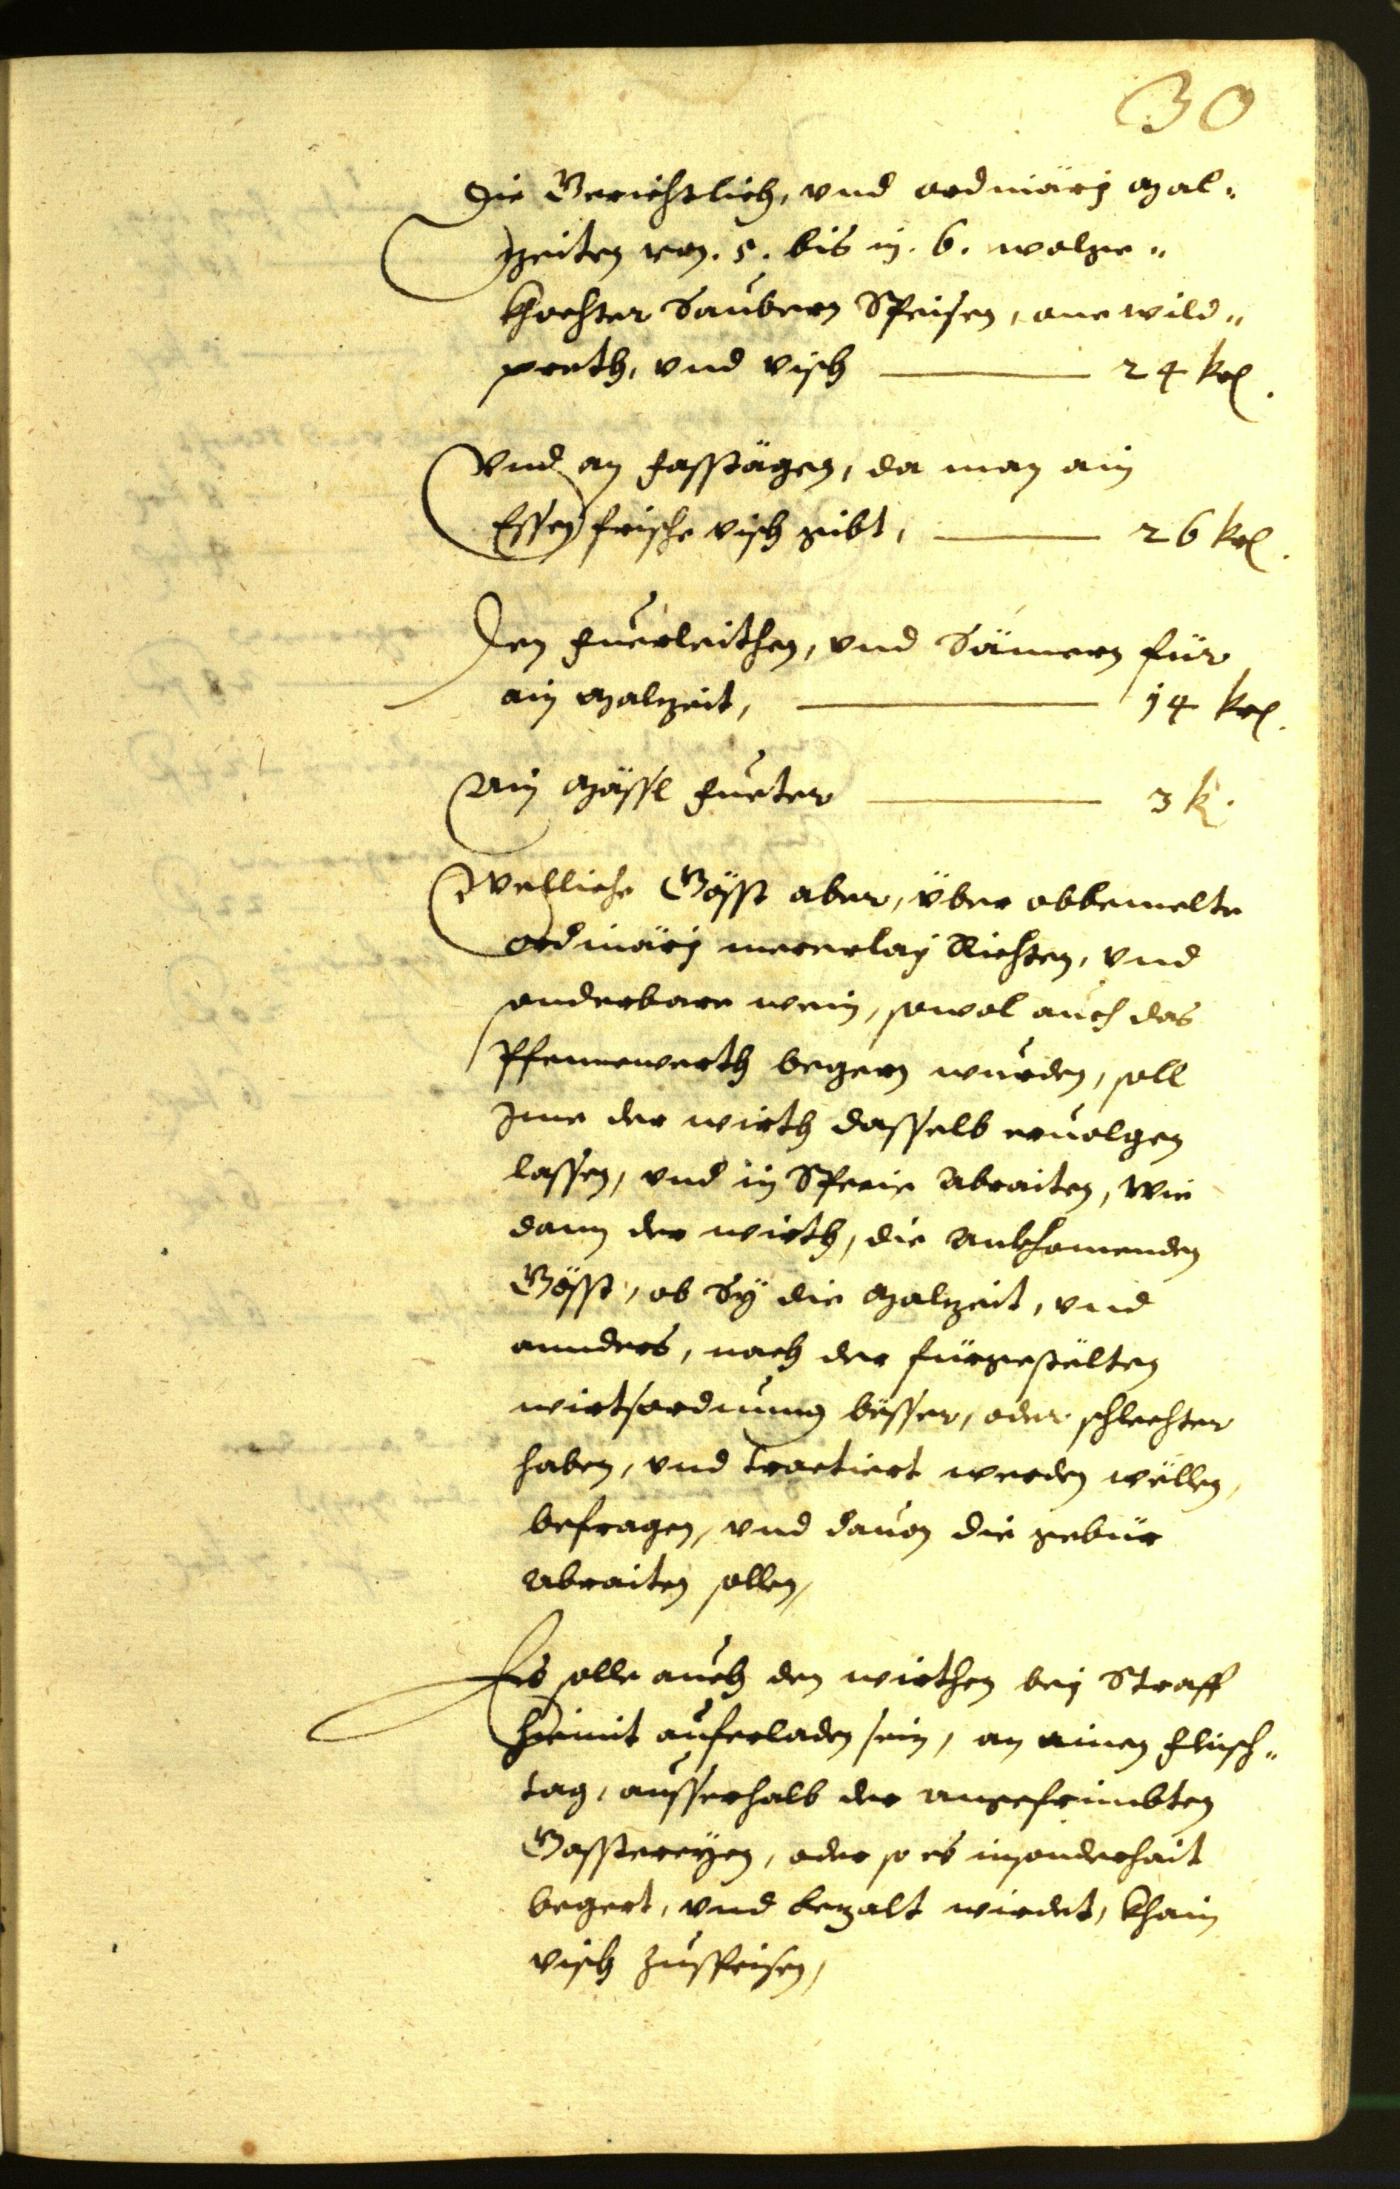 30
Die Gerichtlich, vnd ordinärj Mal-
zeiten von. 5. bis in. 6. wolge-
khochter Saubern Speisen, one wild-
preth, vnd visch — 24 krl.
Vnd an fasstägen, da man ain
Essen frische visch gibt, — 26 krl.
Den Fuerleithen, vnd Sämern für
ain Malzeit, — 14 krl.
Ain Mässl Fueter — 3 k.
Welliche Gösst aber, über obbemelte
ordinärj mererlaj Richten, vnd
sonderbare wein, sowol auch das
Pfennwerth begern wurden, soll
Jme der wirth dasselb eruolgen
lassen, vnd in Specie Abraiten, Wie
dann der wirth, die Ankhomenden
Gösst, ob Sÿ die Malzeit, vnd
annders, nach der fürgestelten
wirtsordnung bësser, oder schlechter
haben, vnd tractiert werden wëllen,
befragen, vnd dauon die gebür
Abraiten sollen,
Es solle auch den wirthen bej Straff
hiemit auferladen sein, an ainen fleisch-
tag, ausserhalb der angefrimbten
Gasstereyen, oder so es insonderhait
begert, vnd bezalt wirdet, khain
visch zuspeisen,